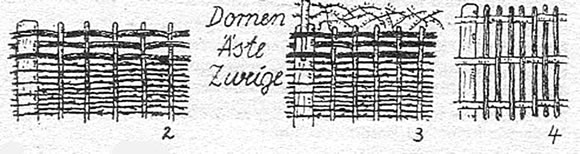 Dornen
Äste
Zweige
2
3
4